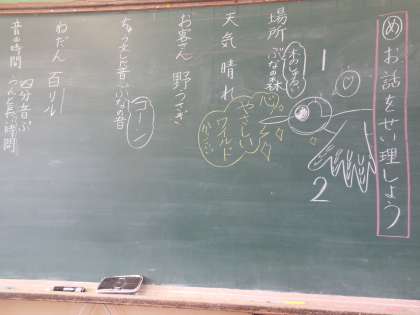 め お話をせい理しよう
1
2
場所 ぶなの森
天気 晴れ
心
やさしい
ワイルド
お客さん 野うさぎ
ちょっとした音 ぶなの音
コーン
ねだん 百リル
音の時間 四分音ぷ
うんと長い時間